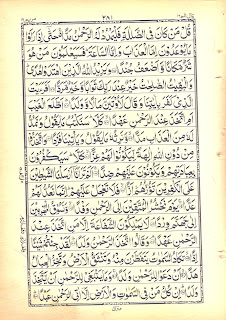 ٢٨١
قُلْ مَنْ كَانَ فِى الضَّلٰلَةِ فَلْيَمْدُدْ لَهُ الرَّحْمٰنُ مَدًّا حَتّٰى اِذَا رَاَوْا
مَا يُوْعَدُوْنَ اِمَّا الْعَذَابَ وَاِمَّا السَّاعَةَ فَسَيَعْلَمُوْنَ مَنْ هُوَ
شَرٌّ مَّكَانًا وَّاَضْعَفُ جُنْدًا وَيَزِيْدُ اللّٰهُ الَّذِيْنَ اهْتَدَوْا هُدًى
وَالْبٰقِيٰتُ الصّٰلِحٰتُ خَيْرٌ عِنْدَ رَبِّكَ ثَوَابًا وَّخَيْرٌ مَّرَدًّا اَفَرَءَيْتَ
الَّذِىْ كَفَرَ بِاٰيٰتِنَا وَقَالَ لَاُوْتَيَنَّ مَالًا وَّوَلَدًا اَطَّلَعَ الْغَيْبَ
اَمِ اتَّخَذَ عِنْدَ الرَّحْمٰنِ عَهْدًا كَلَّا سَنَكْتُبُ مَا يَقُوْلُ وَنَمُدُّ
لَهٗ مِنَ الْعَذَابِ مَدًّا وَنَرِثُهٗ مَا يَقُوْلُ وَيَاْتِيْنَا فَرْدًا وَاتَّخَذُوْا
مِنْ دُوْنِ اللّٰهِ اٰلِهَةً لِّيَكُوْنُوْا لَهُمْ عِزًّا كَلَّا سَيَكْفُرُوْنَ
بِعِبَادَتِهِمْ وَيَكُوْنُوْنَ عَلَيْهِمْ ضِدًّا اَلَمْ تَرَ اَنَّا اَرْسَلْنَا الشَّيٰطِيْنَ
عَلَى الْكٰفِرِيْنَ تَؤُزُّهُمْ اَزًّا فَلَا تَعْجَلْ عَلَيْهِمْ اِنَّمَا نَعُدُّ لَهُمْ
عَدًّا يَوْمَ نَحْشُرُ الْمُتَّقِيْنَ اِلَى الرَّحْمٰنِ وَفْدًا وَّنَسُوْقُ الْمُجْرِمِيْنَ
اِلٰى جَهَنَّمَ وِرْدًا لَا يَمْلِكُوْنَ الشَّفَاعَةَ اِلَّا مَنِ اتَّخَذَ عِنْدَ
الرَّحْمٰنِ عَهْدًا وَقَالُوا اتَّخَذَ الرَّحْمٰنُ وَلَدًا لَقَدْ جِئْتُمْ شَيْئًا
اِدًّا تَكَادُ السَّمٰوٰتُ يَتَفَطَّرْنَ مِنْهُ وَتَنْشَقُّ الْاَرْضُ وَتَخِرُّ الْجِبَالُ
هَدًّا اَنْ دَعَوْا لِلرَّحْمٰنِ وَلَدًا وَمَا يَنْبَغِىْ لِلرَّحْمٰنِ اَنْ يَّتَّخِذَ
وَلَدًا اِنْ كُلُّ مَنْ فِى السَّمٰوٰتِ وَالْاَرْضِ اِلَّا اٰتِى الرَّحْمٰنِ عَبْدًا